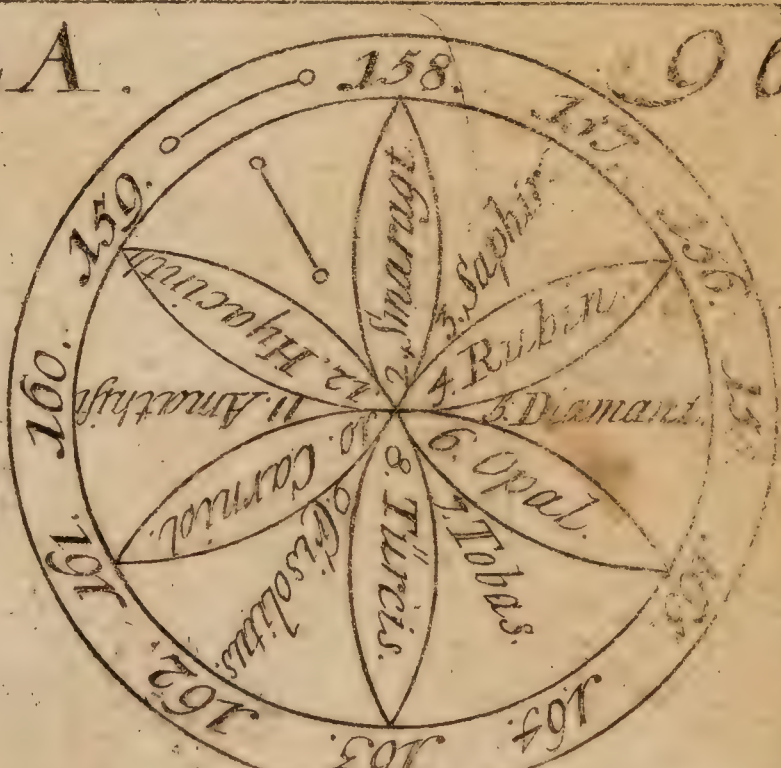 A.
96
158.
157
156.
163.
164.
162.
161.
160.
159.
2. Smaragt
3. Saphir
4. Rubin.
5. Diamant.
6. Opal.
7. Tobas.
8. Türcis.
9. Crisolitus.
10. Carniol.
11. Amathyst
12. Hyacinth